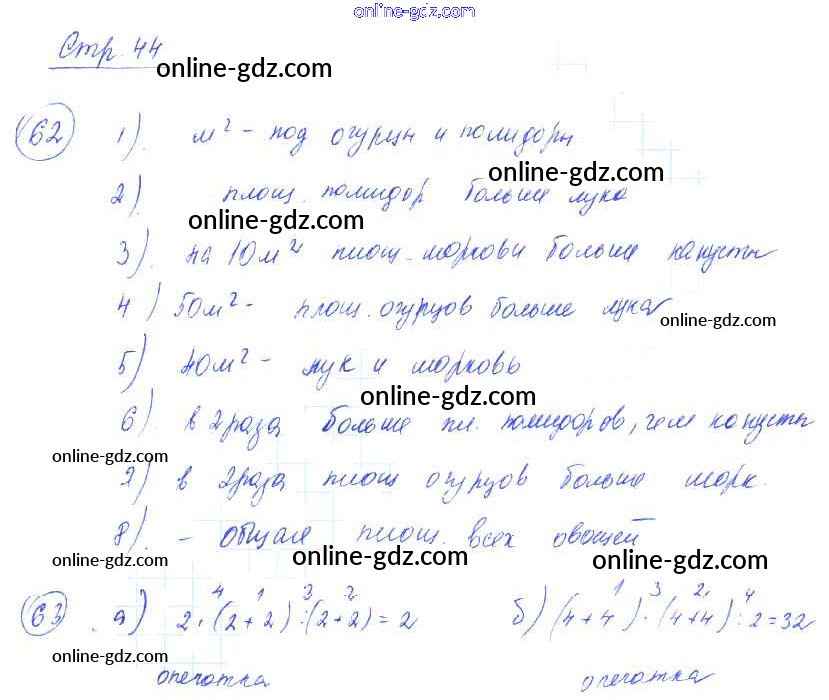 online-gdz.com
Стр. 44
online-gdz.com
62 1). м² - под огурцы и помидоры
online-gdz.com
2) площ. помидор больше лука
online-gdz.com
3). на 10 м² площ. моркови больше капусты
4) 50 м² - площ. огурцов больше лука
online-gdz.com
5) 40 м² - лук и морковь
online-gdz.com
6). в 2 раза больше пл. помидоров, чем капусты
online-gdz.com
7) в 2 раза площ огурцов больше морк.
8). - общая площ. всех овощей
online-gdz.com online-gdz.com online-gdz.com
4 1 3 2 1 3 2 4
63 а) 2 · (2 + 2) : (2 + 2) = 2 б) (4 + 4) · (4 + 4) : 2 = 32
online-gdz.com
опечатка опечатка